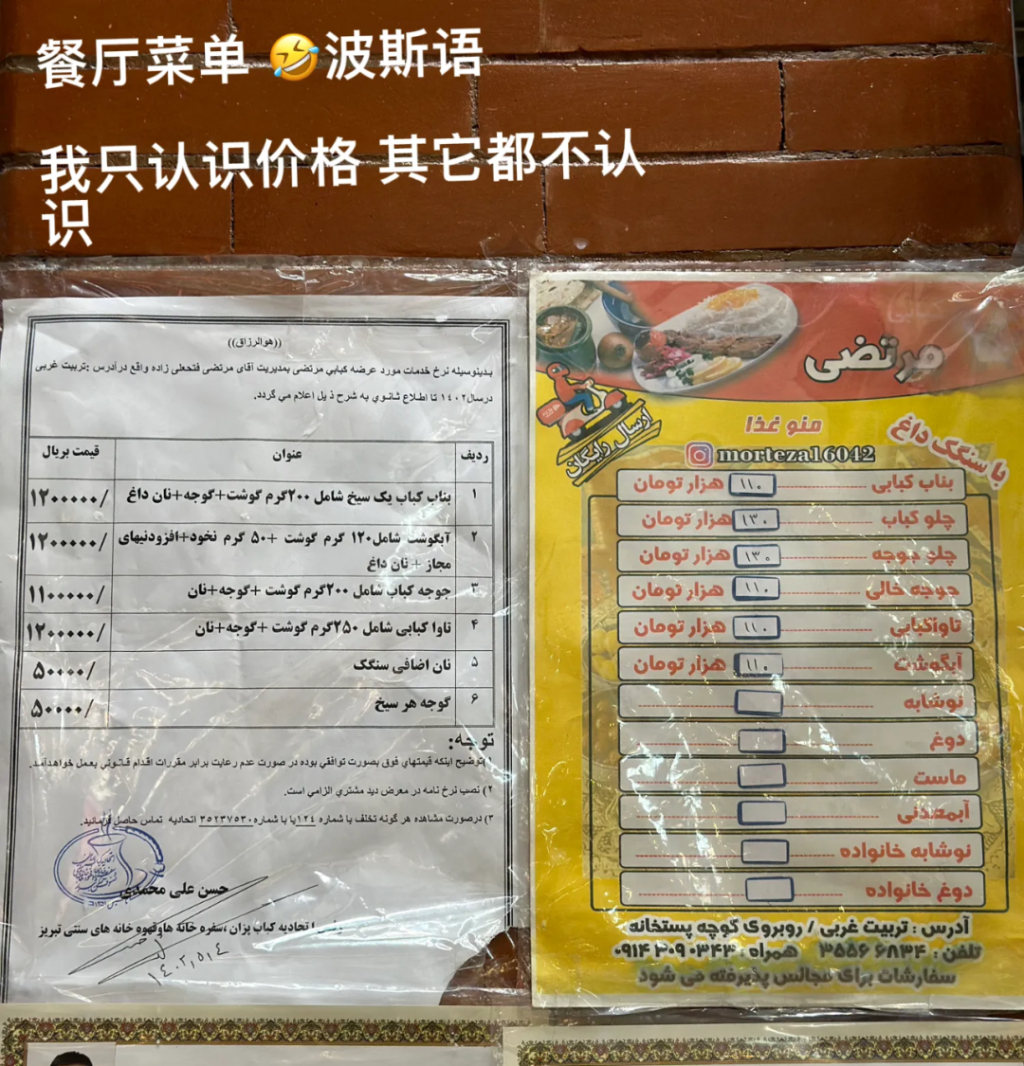 餐厅菜单 🤣波斯语
我只认识价格 其它都不认
识
((هوالرزاق))
بدینوسیله نرخ خدمات مورد عرضه کبابی مرتضی بمدیریت آقای مرتضی فتحعلی زاده واقع درآدرس :تربیت غربی
درسال۱۴۰۲ تا اطلاع ثانوي به شرح ذیل اعلام مي گردد.
ردیف عنوان قیمت بریال
۱ بناب کباب یک سیخ شامل ۲۰۰گرم گوشت+گوجه+نان داغ ۱۲۰۰۰۰۰/
۲ آبگوشت شامل۱۲۰ گرم گوشت +۵۰ گرم نخود+افزودنیهای
مجاز + نان داغ ۱۲۰۰۰۰۰/
۳ جوجه کباب شامل ۲۰۰گرم گوشت +گوجه+نان ۱۱۰۰۰۰۰/
۴ تاوا کبابی شامل ۲۵۰گرم گوشت +گوجه+نان ۱۲۰۰۰۰۰/
۵ نان اضافی سنگک ۵۰۰۰۰/
۶ گوجه هر سیخ ۵۰۰۰۰/
توجه:
۱)توضیح اینکه قیمتهای فوق بصورت توافقي بوده در صورت عدم رعایت برابر مقررات اقدام قانوني بعمل خواهدآمد.
۲) نصب نرخ نامه در معرض دید مشتري الزامي است.
۳) درصورت مشاهده هر گونه تخلف با شماره ۱۲٤یا با شماره۳۵۲۳۷۵۳۰ اتحادیه تماس حاصل فرمائید.
حسن علی محمدی
اتحادیه کباب پزان ،سفره خانه هاوقهوه خانه های سنتی تبریز
۱۴۰۲,۵,۴
مرتضی
ارسال رایگان
منو غذا
با سنگک داغ
morteza16042
بناب کبابی ۱۱۰ هزار تومان
چلو کباب ۱۳۰ هزار تومان
چلو جوجه ۱۳۰ هزار تومان
جوجه خالی ۱۱۰ هزار تومان
تاواکبابی ۱۱۰ هزار تومان
آبگوشت ۱۱۰ هزار تومان
نوشابه
دوغ
ماست
آبمعدنی
نوشابه خانواده
دوغ خانواده
آدرس : تربیت غربی / روبروی کوچه پستخانه
تلفن : ۳۵۵۶ ۶۸۳۴ همراه : ۰۹۱۴ ۳۰۹ ۰۳۴۳
سفارشات برای مجالس پذیرفته می شود